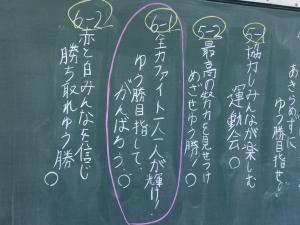 あきらめずに
ゆう勝目指せ
5-1
協力しみんなが楽しむ
運動会
5-2
最高の努力を見せつけ
めざせゆう勝!
6-1
全力ファイト一人一人が輝け!
ゆう勝目指して、
がんばろう。
6-2
赤と白みんなを信じ
勝ち取れゆう勝